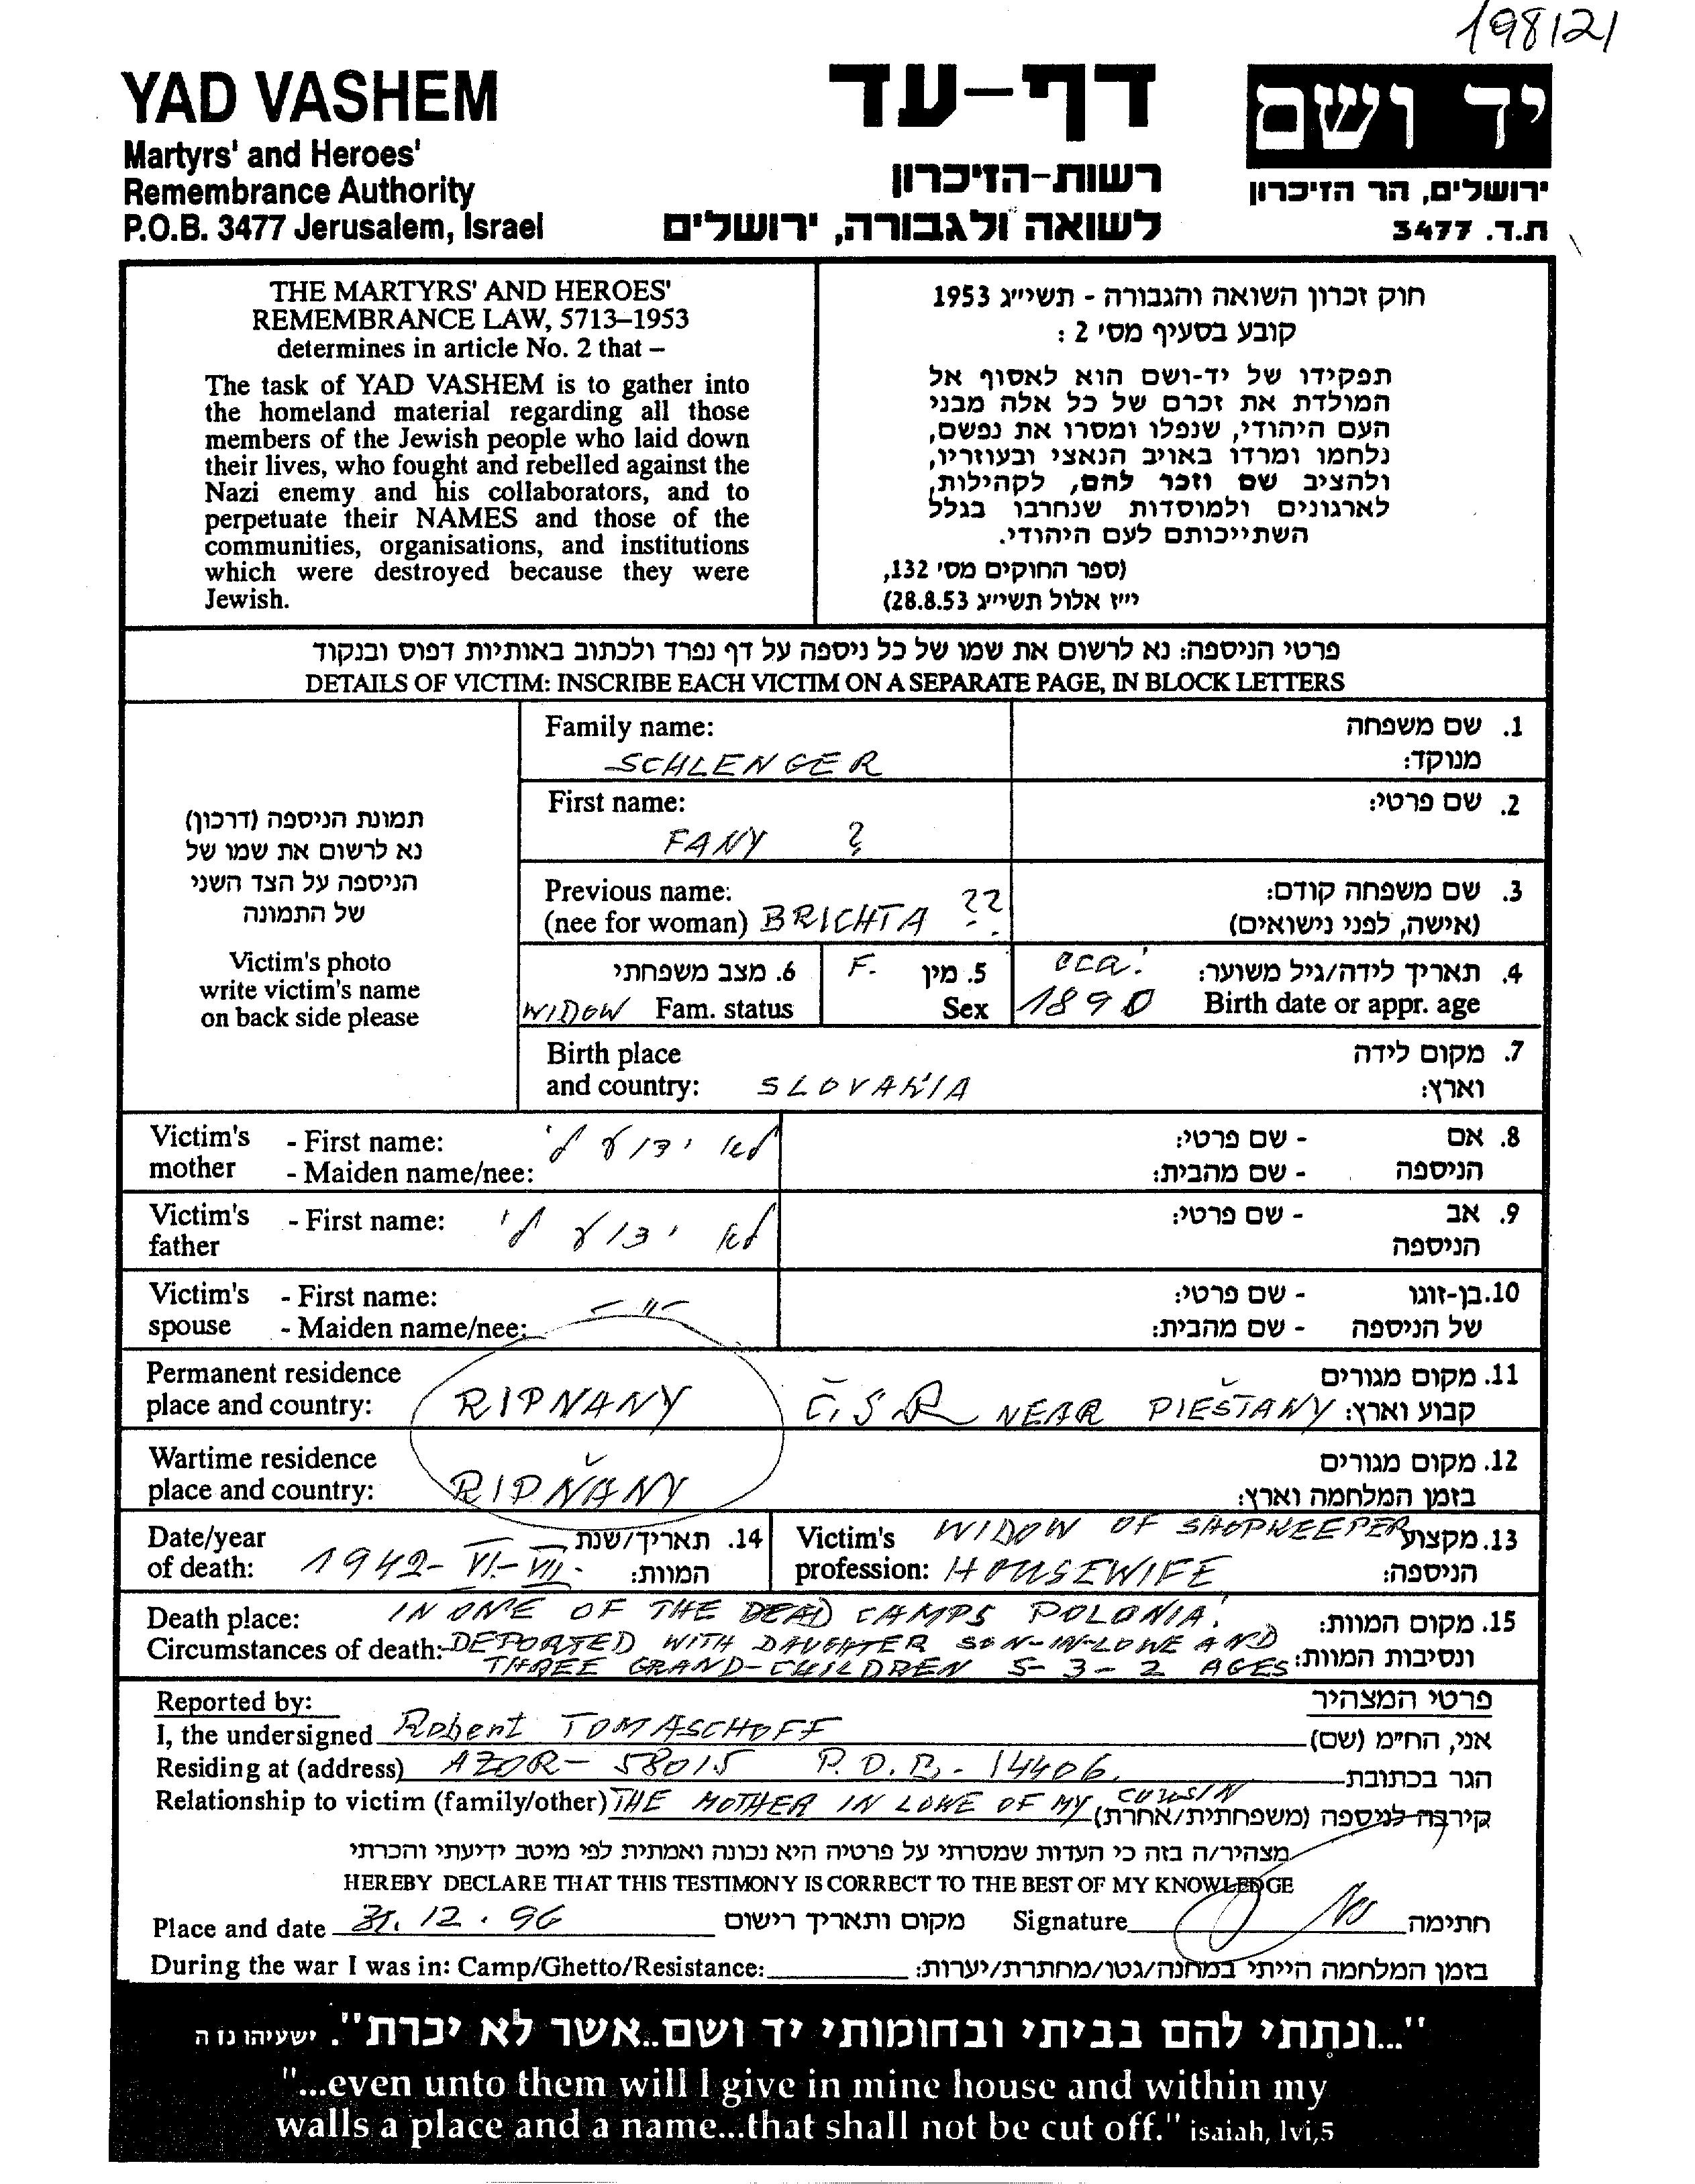 198121
YAD VASHEM
Martyrs' and Heroes'
Remembrance Authority
P.O.B. 3477 Jerusalem, Israel
דף-עד
רשות-הזיכרון
לשואה ולגבורה, ירושלים
יד ושם
ירושלים, הר הזיכרון
ת.ד. 3477
THE MARTYRS' AND HEROES'
REMEMBRANCE LAW, 5713–1953
determines in article No. 2 that –
The task of YAD VASHEM is to gather into
the homeland material regarding all those
members of the Jewish people who laid down
their lives, who fought and rebelled against the
Nazi enemy and his collaborators, and to
perpetuate their NAMES and those of the
communities, organisations, and institutions
which were destroyed because they were
Jewish.
חוק זכרון השואה והגבורה - תשי״ג 1953
קובע בסעיף מס׳ 2 :
תפקידו של יד-ושם הוא לאסוף אל
המולדת את זכרם של כל אלה מבני
העם היהודי, שנפלו ומסרו את נפשם,
נלחמו ומרדו באויב הנאצי ובעוזריו,
ולהציב שם וזכר להם, לקהילות,
לארגונים ולמוסדות שנחרבו בגלל
השתייכותם לעם היהודי.
(ספר החוקים מס׳ 132,
י״ז אלול תשי״ג 28.8.53)
פרטי הניספה: נא לרשום את שמו של כל ניספה על דף נפרד ולכתוב באותיות דפוס ובנקוד
DETAILS OF VICTIM: INSCRIBE EACH VICTIM ON A SEPARATE PAGE, IN BLOCK LETTERS
תמונת הניספה (דרכון)
נא לרשום את שמו של
הניספה על הצד השני
של התמונה
Victim's photo
write victim's name
on back side please
Family name: 1. שם משפחה
SCHLENGER מנוקד:
First name: 2. שם פרטי:
FANY ?
Previous name: ?? 3. שם משפחה קודם:
(nee for woman) BRICHTA (אישה, לפני נישואים)
6. מצב משפחתי F. 5. מין cca. 4. תאריך לידה/גיל משוער:
WIDOW Fam. status Sex 1890 Birth date or appr. age
Birth place 7. מקום לידה
and country: SLOVAKIA וארץ:
Victim's - First name: לא ידוע לי 8. אם - שם פרטי:
mother - Maiden name/nee: הניספה - שם מהבית:
Victim's - First name: לא ידוע לי 9. אב - שם פרטי:
father הניספה
Victim's - First name: –"– 10. בן-זוגו - שם פרטי:
spouse - Maiden name/nee: של הניספה - שם מהבית:
Permanent residence 11. מקום מגורים
place and country: RIPNANY Č.S.R NEAR PIEŠTANY קבוע וארץ:
Wartime residence 12. מקום מגורים
place and country: RIPŇANY בזמן המלחמה וארץ:
Date/year 14. תאריך/שנת Victim's WIDOW OF SHOPKEEPER 13. מקצוע
of death: 1942- VI.- VII. המוות: profession: HOUSEWIFE הניספה:
Death place: IN ONE OF THE DEAD CAMPS POLONIA. 15. מקום המוות:
Circumstances of death: DEPORTED WITH DAUGHTER SON-IN-LOWE AND ונסיבות המוות:
THREE GRAND-CHILDREN 5-3-2 AGES
Reported by: פרטי המצהיר
I, the undersigned Robert TOMASCHOFF אני, הח״מ (שם)
Residing at (address) AZOR- 58015 P.O.B.- 14406. הגר בכתובת
Relationship to victim (family/other) THE MOTHER IN LOWE OF MY COUSIN קירבה לניספה (משפחתית/אחרת)
מצהיר/ה בזה כי העדות שמסרתי על פרטיה היא נכונה ואמתית לפי מיטב ידיעתי והכרתי
HEREBY DECLARE THAT THIS TESTIMONY IS CORRECT TO THE BEST OF MY KNOWLEDGE
Place and date 31.12.96 מקום ותאריך רישום Signature חתימה
During the war I was in: Camp/Ghetto/Resistance: בזמן המלחמה הייתי במחנה/גטו/מחתרת/יערות:
"...ונתתי להם בביתי ובחומותי יד ושם..אשר לא יכרת". ישעיהו נו ה
"...even unto them will I give in mine house and within my
walls a place and a name...that shall not be cut off." isaiah, lvi,5